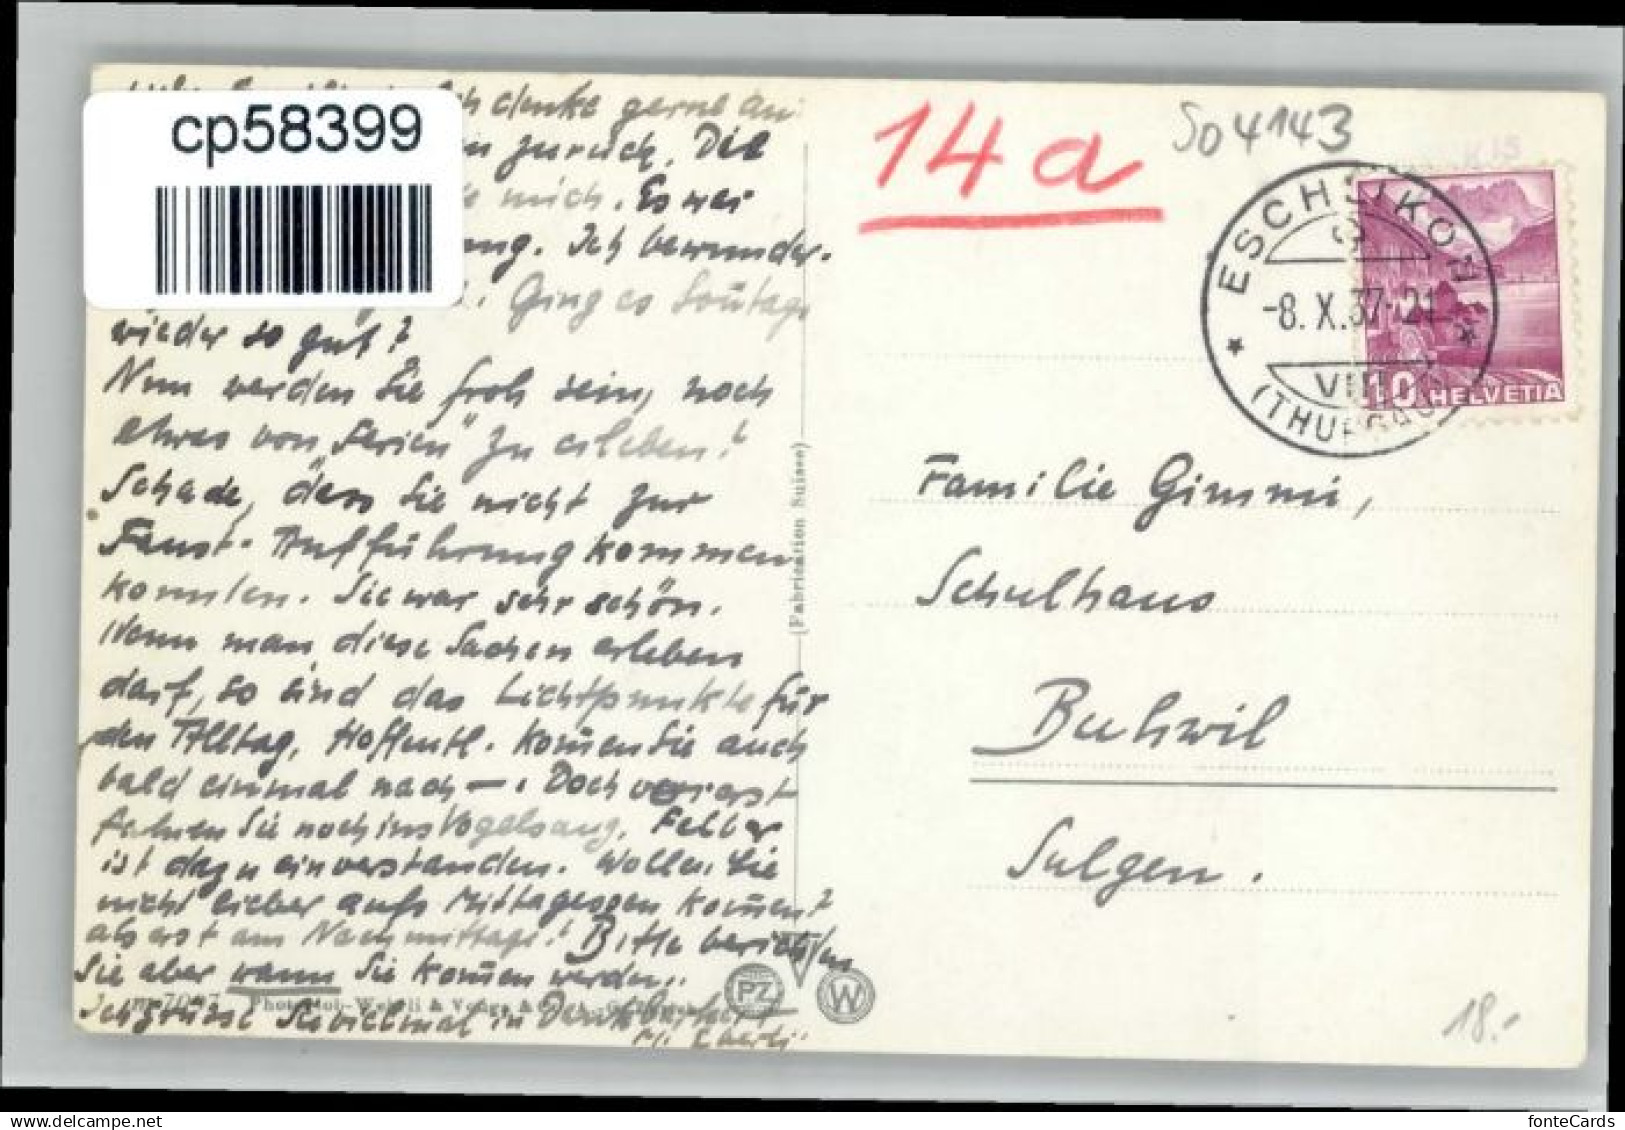 cp58399
denke gerne an
zurück. Die
mich. Es war
ung. Ich bewunder-
Ging es Sonntags
wieder so gut?
Nun werden Sie froh sein, noch
etwas von "Ferien" zu erleben!
Schade, dass Sie nicht zur
Faust-Aufführung kommen
konnten. Sie war sehr schön.
Wenn man diese Sachen erleben
darf, so sind das Lichtpunkte für
den Alltag. Hoffentl. kom̄en Sie auch
bald einmal nach —. Doch vorerst
fahren Sie noch ins Vogelsang. Feller
ist dazu einverstanden. Wollen Sie
nicht lieber aufs Mittagessen kom̄en?
als erst am Nachmittage! Bitte berichten
Sie aber wann Sie kom̄en werden.
Ich grüsse Sie vielmal in Dankbarkeit
(Fabrication Suisse)
PZ
W
14a
So 4143
ESCHLIKON
-8.X.37-21
VIII
(THURGAU)
10 HELVETIA
Familie Gimmi,
Schulhaus
Buhwil
Sulgen.
18.-
fonteCards